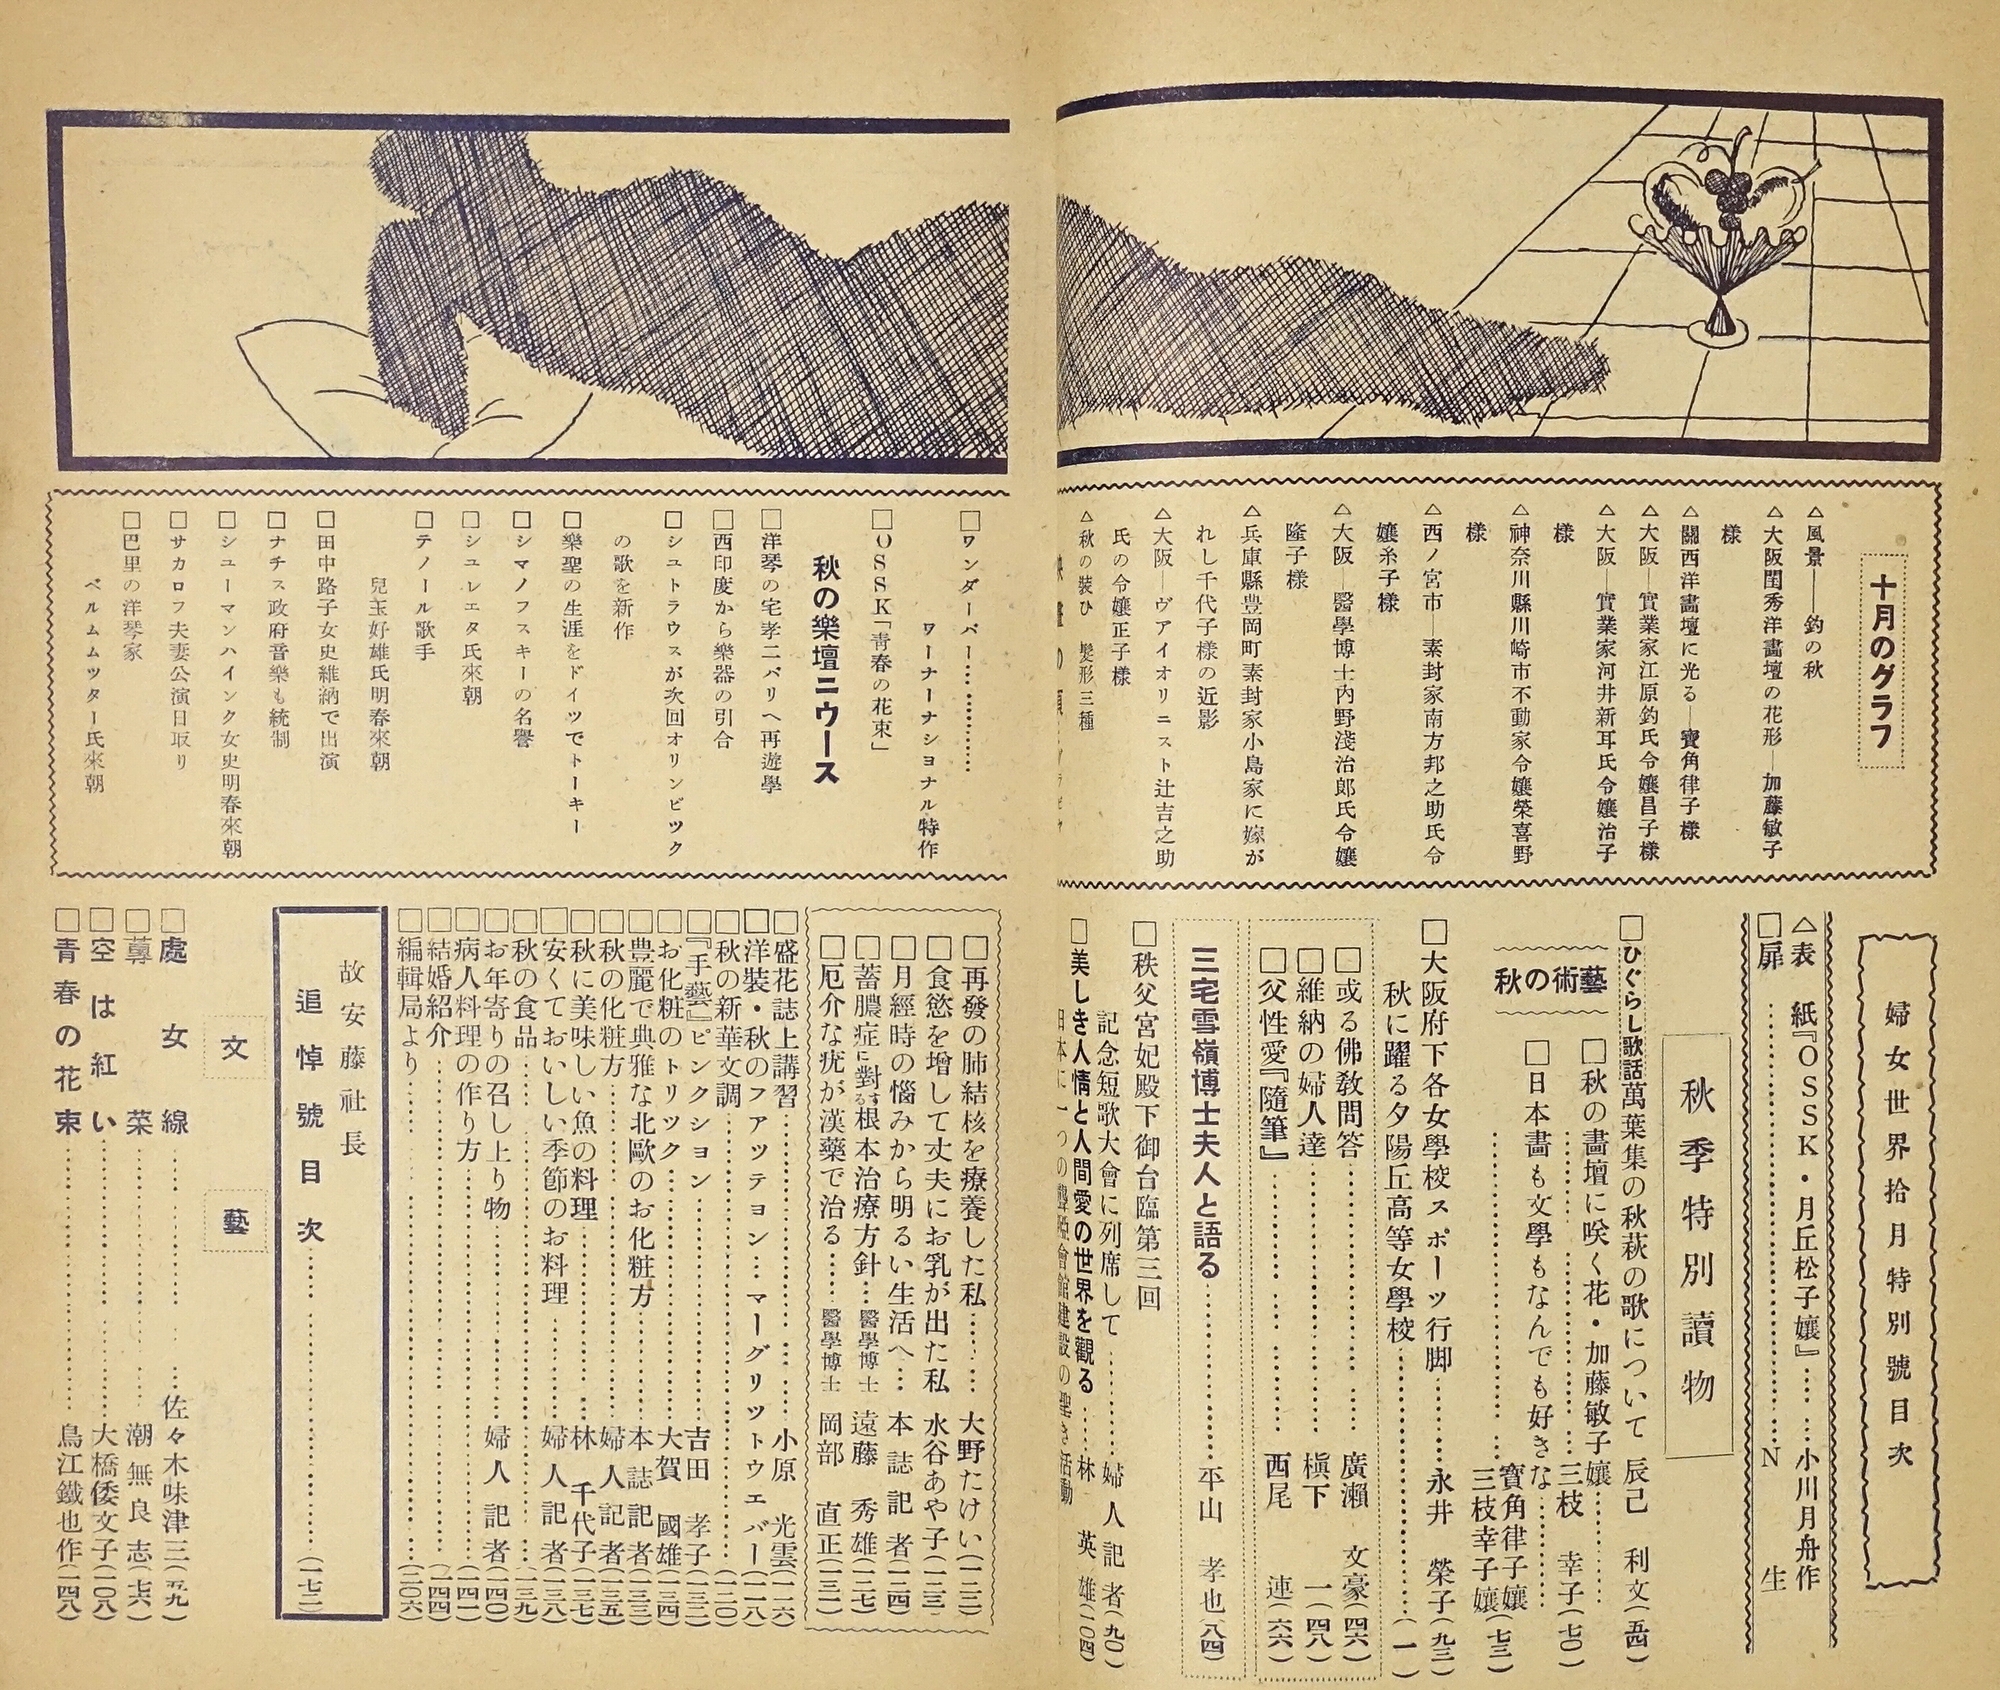 婦女世界拾月特別號目次
△表紙『OSSK・月丘松子孃』……小川月舟作
□扉……N生
秋季特別讀物
□ひぐらし歌話萬葉集の秋萩の歌について 辰己利文(五四)
秋の術藝
□秋の畫壇に咲く花・加藤敏子孃……
……三枝幸子(七〇)
□日本畫も文學もなんでも好きな……
……寶角律子孃
三枝幸子孃(七三)
□大阪府下各女學校スポーツ行脚……永井榮子(九三)
秋に躍る夕陽丘高等女學校……(一)
□或る佛敎問答……廣瀨文豪(四六)
□維納の婦人達……槇下一(四八)
□父性愛『隨筆』……西尾連(六六)
三宅雪嶺博士夫人と語る……平山孝也(八四)
□秩父宮妃殿下御台臨第三回
記念短歌大會に列席して……婦人記者(九〇)
□美しき人情と人間愛の世界を觀る……林英雄(一〇四)
十月のグラフ
△風景——釣の秋
△大阪閨秀洋畫壇の花形—加藤敏子
樣
△關西洋畫壇に光る—寶角律子樣
△大阪—實業家江原釣氏令孃昌子樣
△大阪—實業家河井新耳氏令孃治子
樣
△神奈川縣川崎市不動家令孃榮喜野
樣
△西ノ宮市—素封家南方邦之助氏令
孃糸子樣
△大阪—醫學博士內野淺治郎氏令孃
隆子樣
△兵庫縣豊岡町素封家小島家に嫁が
れし千代子樣の近影
△大阪—ヴアイオリニスト辻吉之助
氏の令孃正子樣
△秋の裝ひ 髪形三種
□ワンダーバー……
ワーナーナシヨナル特作
□OSSK「靑春の花束」
秋の樂壇ニウース
□洋琴の宅孝二パリへ再遊學
□西印度から樂器の引合
□シユトラウスが次回オリンピツク
の歌を新作
□樂聖の生涯をドイツでトーキー
□シマノフスキーの名譽
□シユレエタ氏來朝
□テノール歌手
兒玉好雄氏明春來朝
□田中路子女史維納で出演
□ナチス政府音樂も統制
□シユーマンハインク女史明春來朝
□サカロフ夫妻公演日取り
□巴里の洋琴家
ベルムムツター氏來朝
□再發の肺結核を療養した私……大野たけい(一二二)
□食慾を增して丈夫にお乳が出た私 水谷あや子(一二三)
□月經時の惱みから明るい生活へ……本誌記者(一二四)
□蓄膿症に對する根本治療方針……醫學博士 遠藤秀雄(一二七)
□厄介な疣が漢藥で治る……醫學博士 岡部直正(一三一)
□盛花誌上講習……小原光雲(一一六)
□洋裝・秋のフアツテヨン…マーグリツトウエバー(一一八)
□秋の新華文調……(一二〇)
□『手藝』ピンクシヨン……吉田孝子(一三二)
□お化粧のトリツク……大賀國雄(一三四)
□豊麗で典雅な北歐のお化粧方……本誌記者(一三三)
□秋の化粧方……婦人記者(一三五)
□秋に美味しい魚の料理……林千代子(一三七)
□安くておいしい季節のお料理……婦人記者(一三八)
□秋の食品……(一三九)
□お年寄りの召し上り物……婦人記者(一四〇)
□病人料理の作り方……(一四一)
□結婚紹介……(一四四)
□編輯局より……(二〇六)
故安藤社長
追悼號目次……(一七一)
文藝
□處女線……佐々木味津三(五九)
□蕈菜……潮無良志(七六)
□空は紅い……大橋倭文子(一〇八)
□靑春の花束……鳥江鐵也作(一四八)